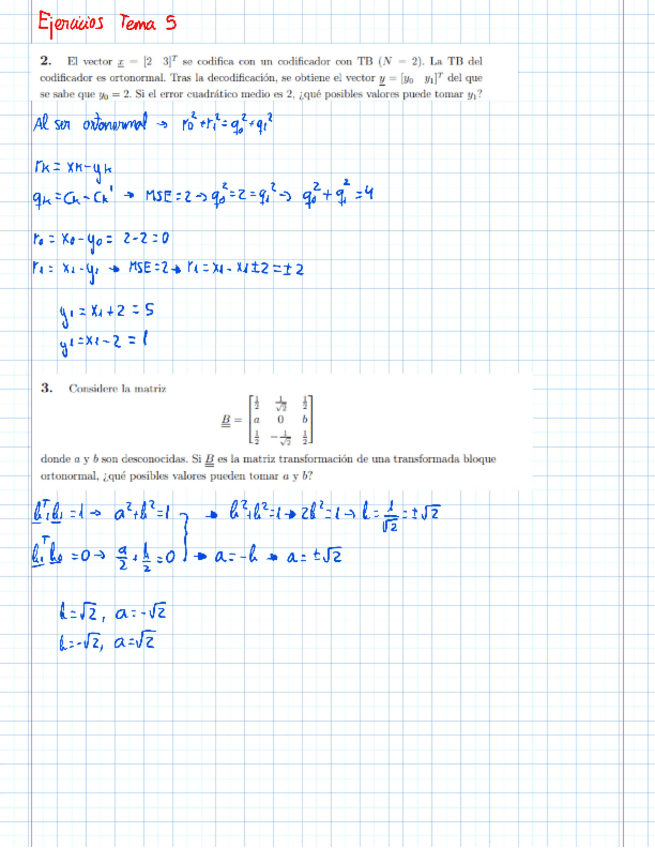 Ejercicios Tema 5
2. El vector x = [2 3]^T se codifica con un codificador con TB (N = 2). La TB del
codificador es ortonormal. Tras la decodificación, se obtiene el vector y = [y₀ y₁]^T del que
se sabe que y₀ = 2. Si el error cuadrático medio es 2, ¿qué posibles valores puede tomar y₁?
Al ser ortonormal → r₀² + r₁² = q₀² + q₁²
rₖ = xₖ - yₖ
qₖ = cₖ - cₖ' → MSE = 2 → q₀² = 2 = q₁² → q₀² + q₁² = 4
r₀ = x₀ - y₀ = 2 - 2 = 0
r₁ = x₁ - y₁ → MSE = 2 → r₁ = x₁ - x₁ ± 2 = ± 2
y₁ = x₁ + 2 = 5
y₁ = x₁ - 2 = 1
3. Considere la matriz
B = [1/2 1/√2 1/2
a 0 b
1/2 -1/√2 1/2]
donde a y b son desconocidas. Si B es la matriz transformación de una transformada bloque
ortonormal, ¿qué posibles valores pueden tomar a y b?
b₁^T b₁ = 1 → a² + b² = 1 } → b² + b² = 1 → 2b² = 1 → b = 1/√2 = ± √2
b₁^T b₀ = 0 → a/2 + b/2 = 0 } → a = -b → a = ± √2
b = √2, a = -√2
b = -√2, a = √2